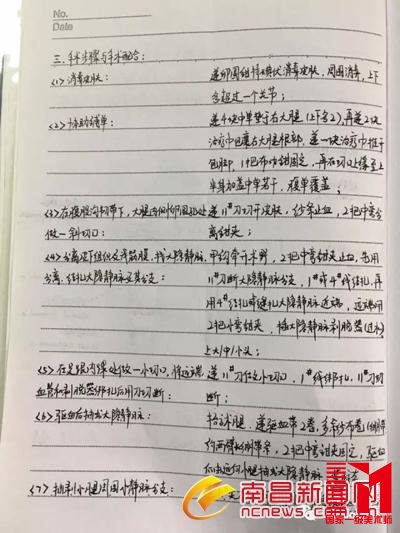 No.
Date
三. 手术步骤与手术配合:
<1> 消毒皮肤: 递卵圆钳持碘伏消毒皮肤, 周围消毒, 上下
各超过一个关节;
<2> 协助铺单: 递4块中单垫于右大腿(上下各2), 再递2块
治疗巾包裹右大腿根部, 递一块治疗巾推于
包脚, 1把布巾钳固定, 再在切口上缘至上
半身加盖中单若干, 腹单覆盖;
<3> 在腹股沟韧带下, 大腿内侧 处 递11#刀切开皮肤, 纱条止血, 2把中弯
做一斜切口: 钳夹;
<4> 分离皮下组织及浅筋膜, 找大隐静脉, 甲钩牵开术野, 2把中弯钳止血, 先用
分离, 结扎大隐静脉及其分支: 11#刀断大隐静脉分支, 1#或4#线扎, 再
用4#结扎或缝扎大隐静脉近端, 远端用
2把中弯钳夹, 插大隐静脉剥脱器(过水)
上大/中/小头;
<5> 在足踝内侧处做一小切口, 将远端 递11#刀作一小切口, 1#线绑扎, 11#刀切
血管和剥脱器绑扎后用刀切断: 断;
<6> 驱血后抽出大隐静脉: 抬高术腿, 递驱血带2卷, 多余纱布卷
, 2把中弯钳固定, 驱血
后由近向小腿抽出大隐静脉
<7> 抽剥小腿周围小静脉分支:
南昌新闻网
ncnews.com.cn
国家一级美术师